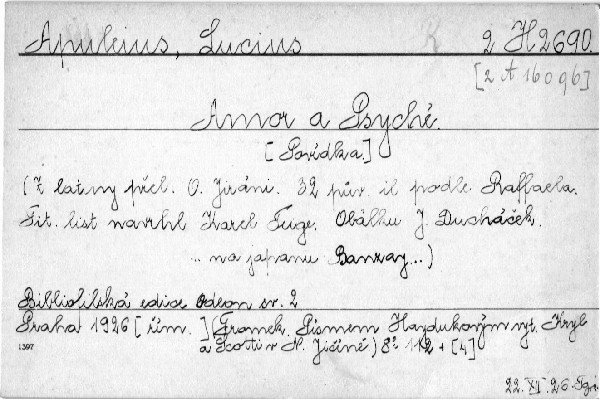 Apuleius, Lucius 2 H 2690.
[2 A 16096]
Amor a Psyché.
[Povídka.]
(Z latiny přel. O. Jiráni. 32 pův. il podle Raffaela.
Tit. list navrhl Karel Tuge. Obálku J. Ducháček.
... na japanu Banzay...)
Bibliofilská edice Odeon sv. 2
Praha 1926 [řím. ] (Fromek. Písmem Hajdukovým vyt. Kryl
a Scotti v N. Jičíně) 8º 112 + [4]
1397
22. XI. 26.